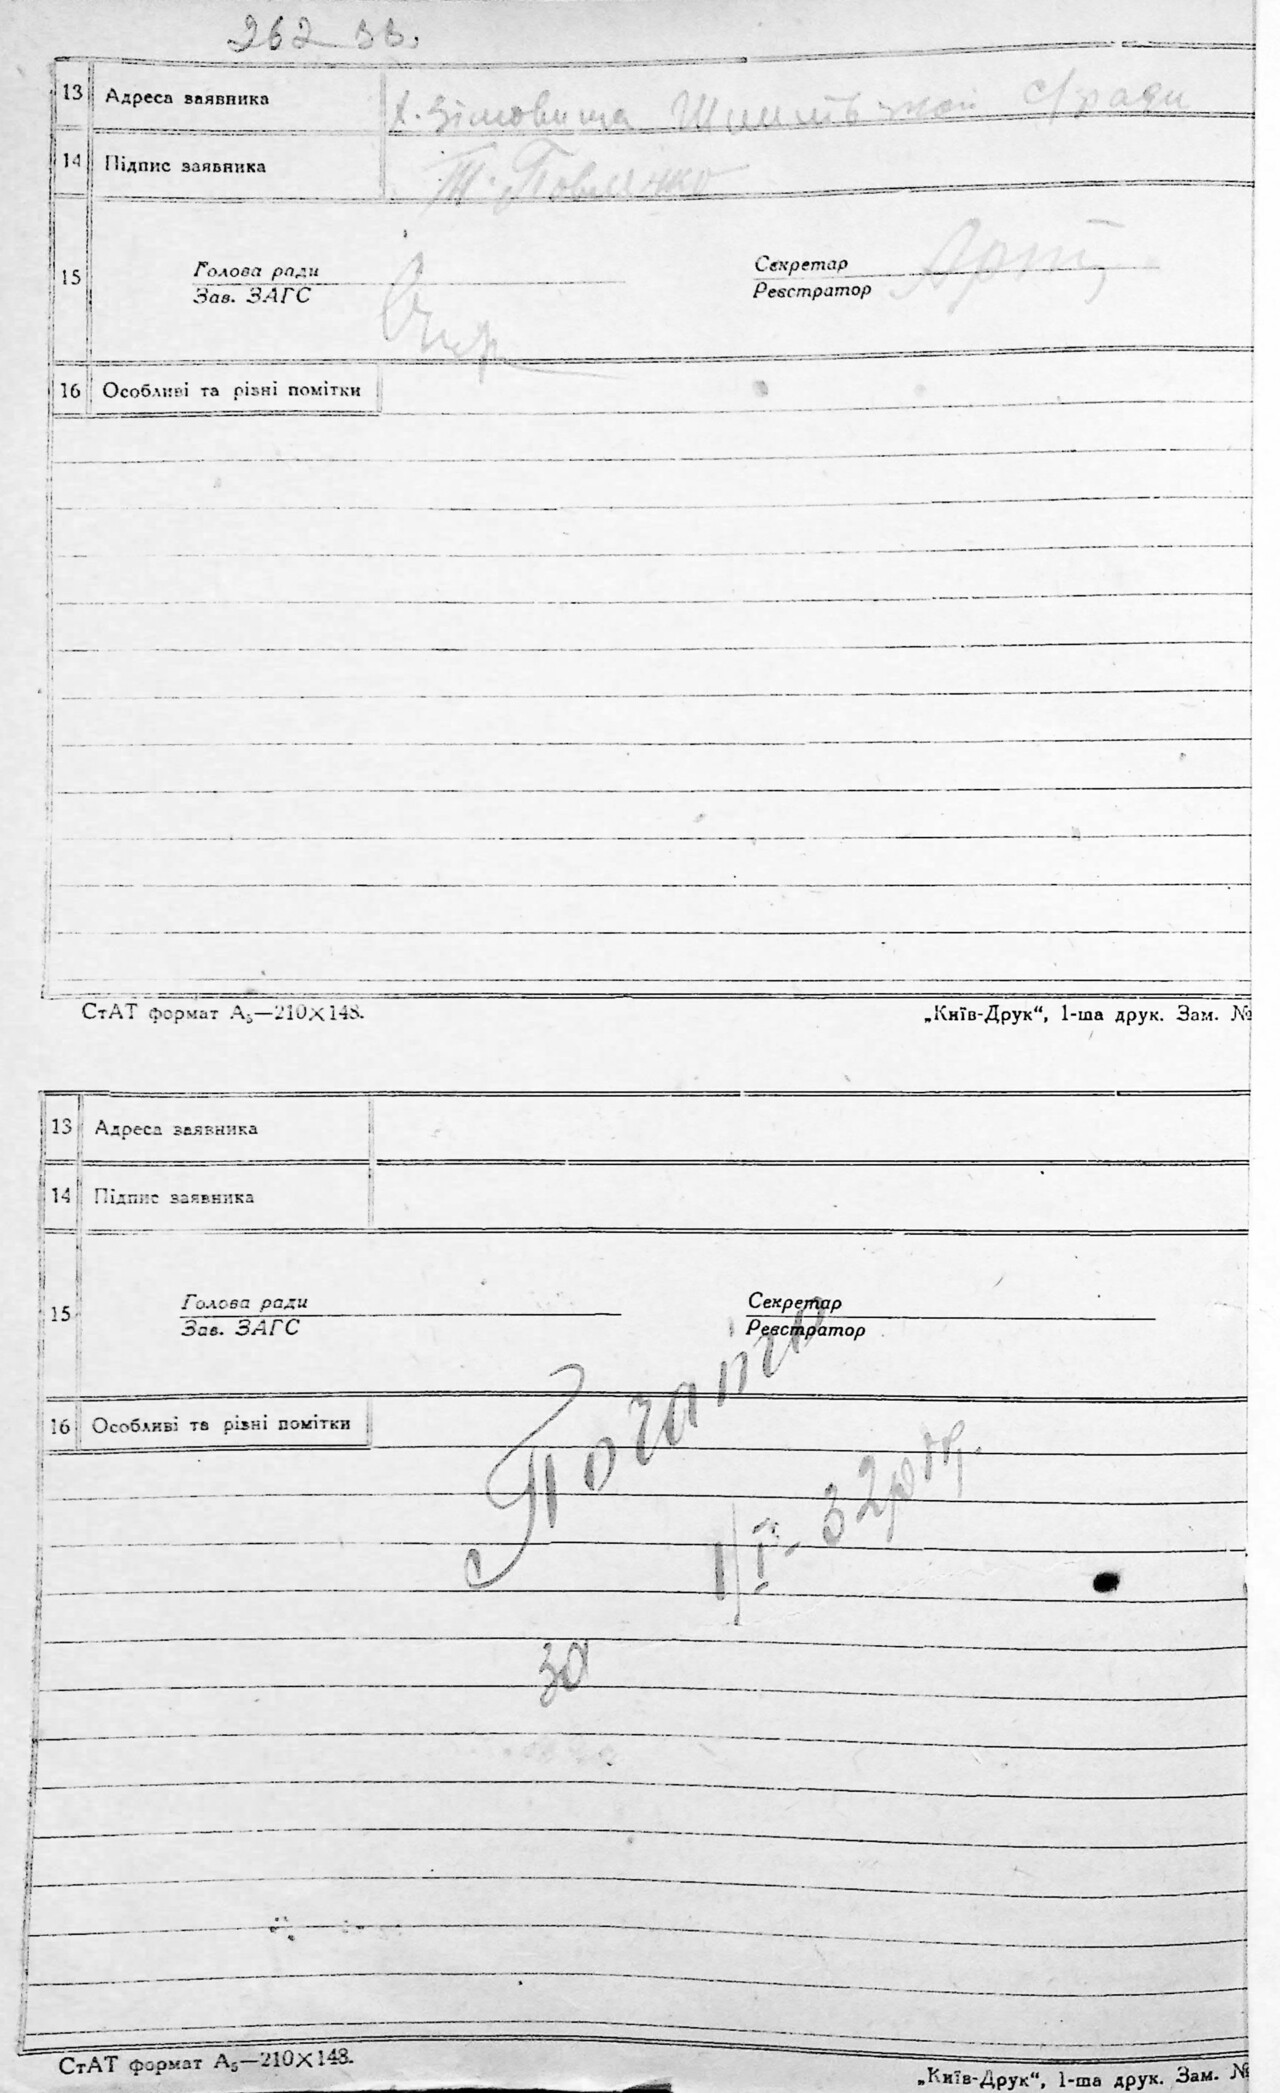 262 зв.
13 Адреса заявника х. Зімовища с/ради
14 Підпис заявника Т. Повлянко
15 Голова ради Секретар
Зав. ЗАГС Реєстратор
16 Особливі та різні помітки
СтАТ формат А₅—210×148. „Київ-Друк“, 1-ша друк. Зам. №
13 Адреса заявника
14 Підпис заявника
15 Голова ради Секретар
Зав. ЗАГС Реєстратор
16 Особливі та різні помітки
Почато
1/I-32р
за
СтАТ формат А₅—210×148. „Київ-Друк“, 1-ша друк. Зам. №